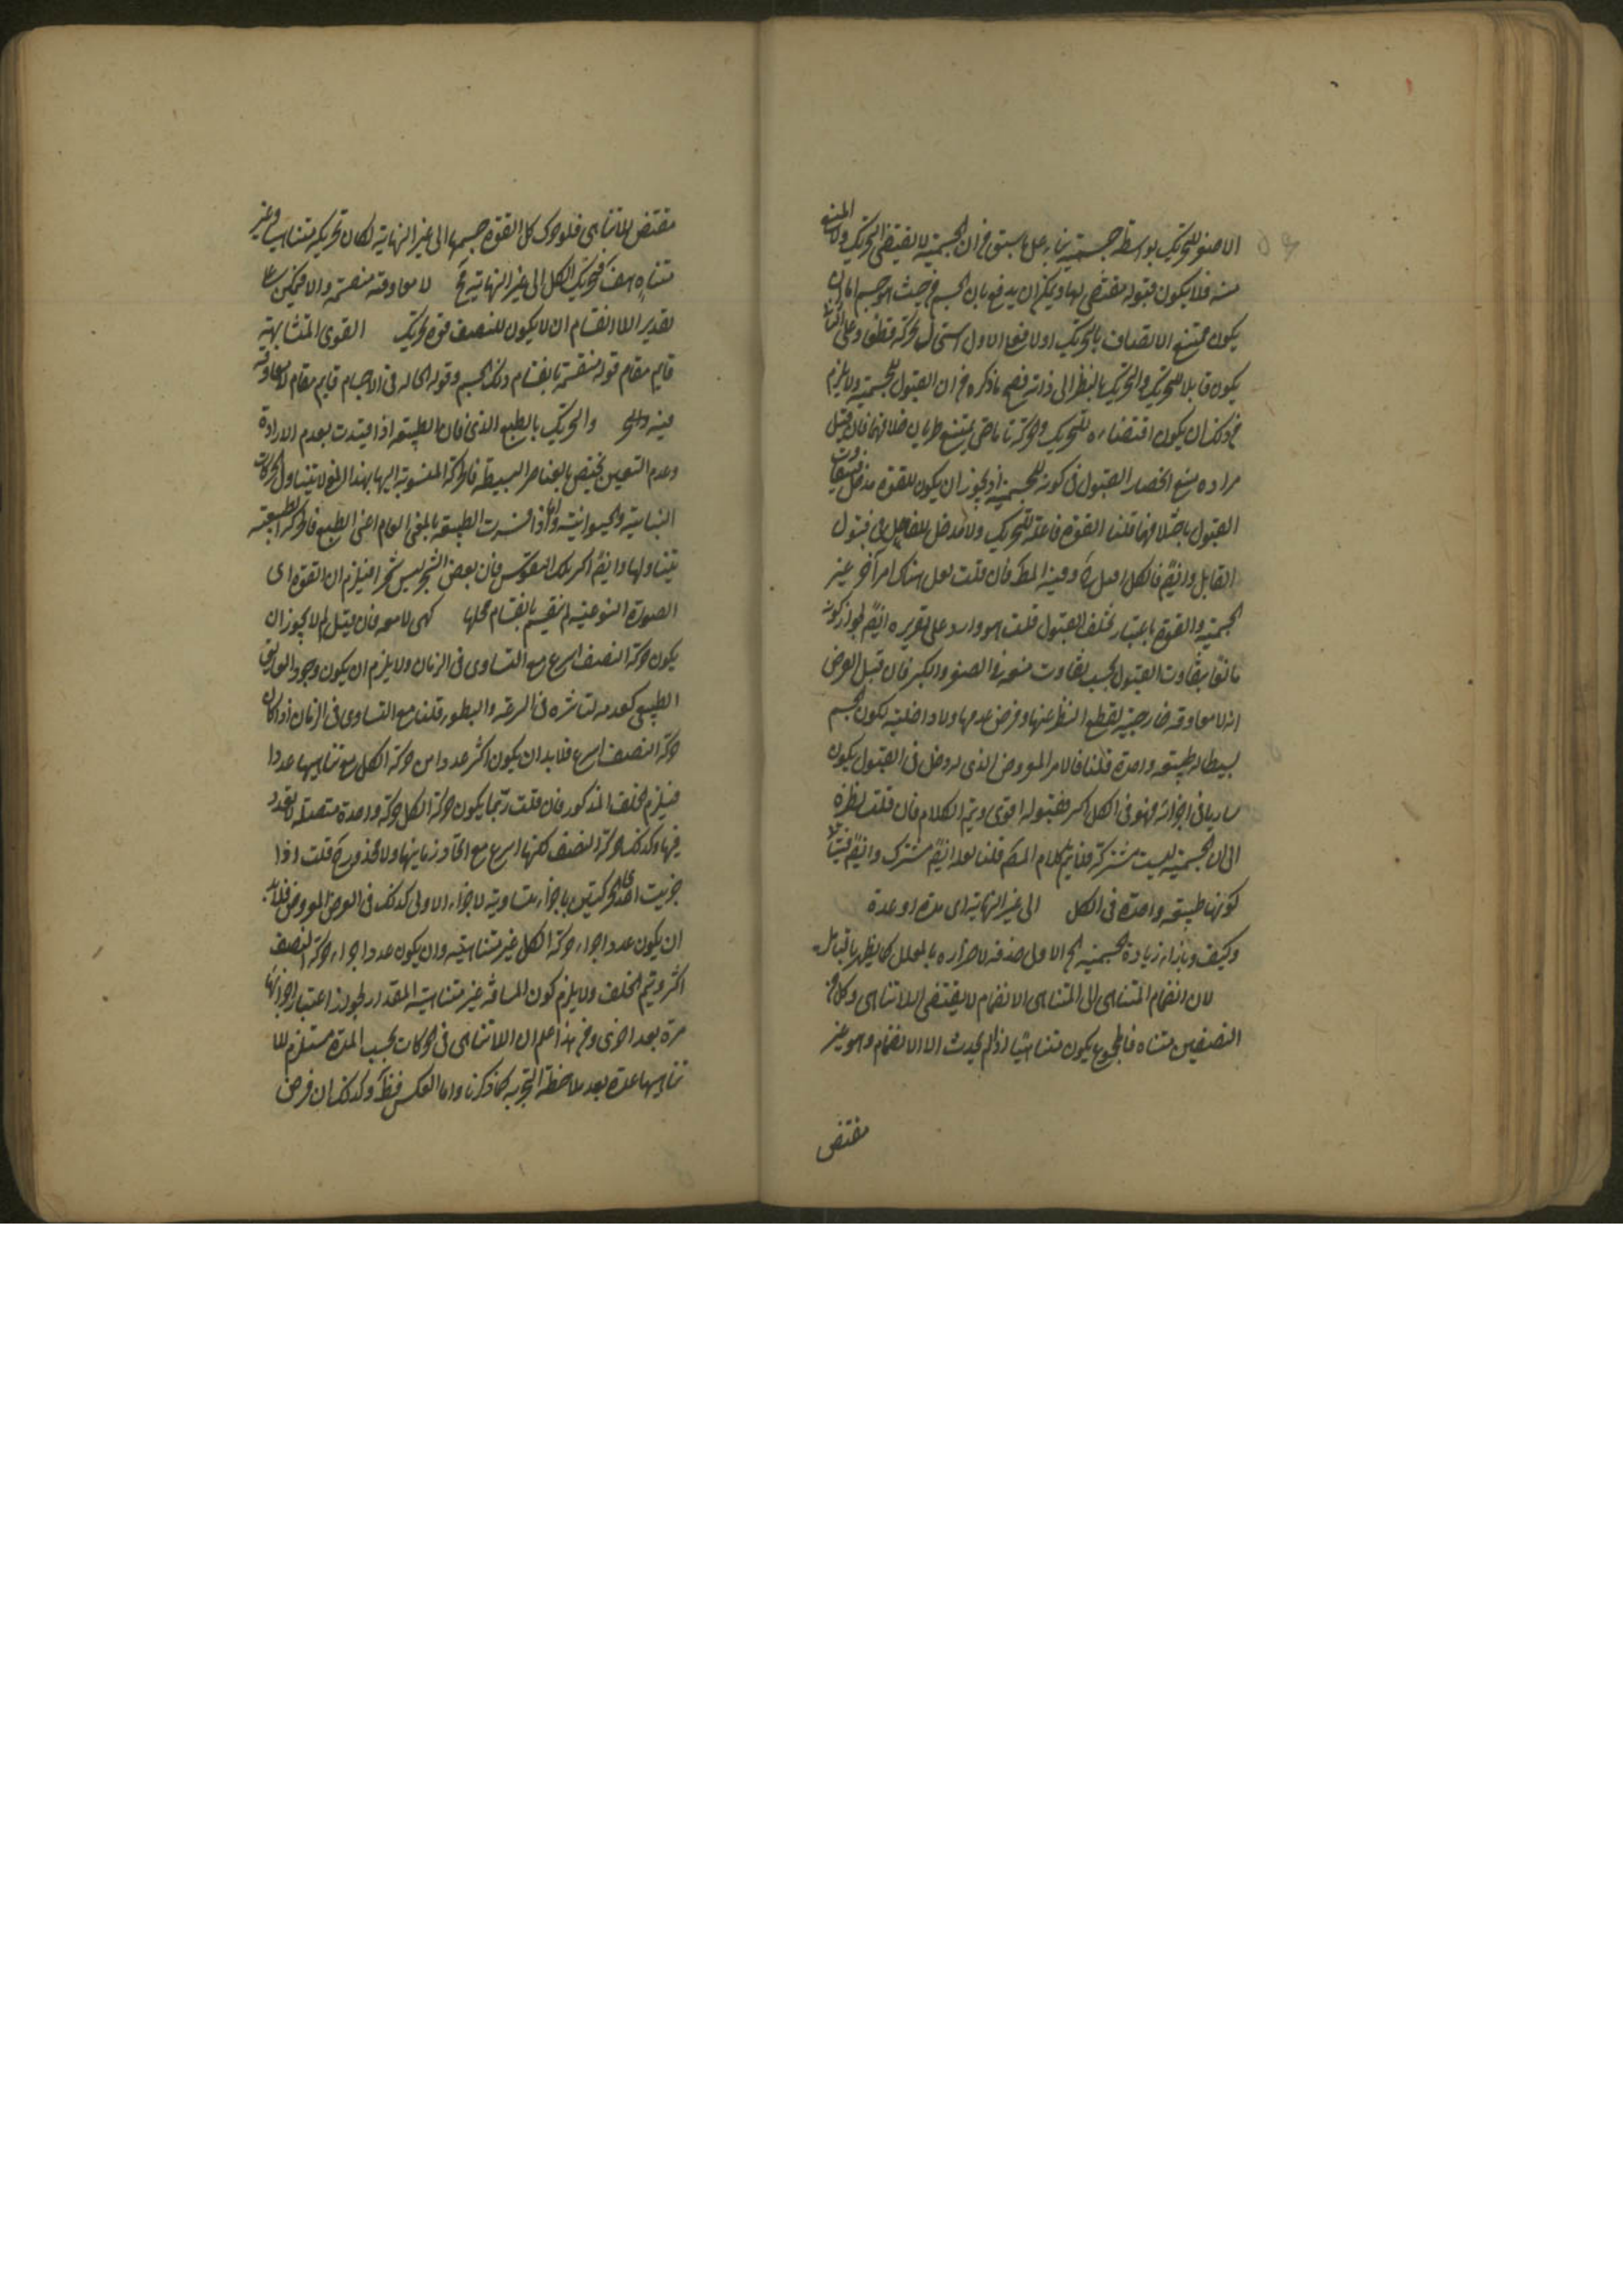 الاصغر للتحريك بواسطة جسمية بناء على ما سبق من ان الجسمية لا يقتضى التحريك ولا المنع
منه فلا يكون قبوله مقتضى لها ويمكن ان يدفع بان الجسم من حيث هو جسم اما ان
يكون ممتنع الاتصاف بالتحريك اولا فعلى الاول استحال حركة قطعا وعلى الثانى
يكون قابلا للتحريك والتحريك بالنظر الى ذاته فصح ما ذكره من ان القبول للجسمية ولا يلزم
من ذلك ان يكون اقتضاءه للتحريك والحركة تاما حتى يمتنع طريان خلافهما فان قيل
مراده منع انحصار القبول فى كونه للجسمية اذ يجوز ان يكون للقوة مدخل فيتفاوت
القبول باختلافهما قلنا القوة فاعلة للتحريك ولا مدخل للفاعل فى قبول
القابل وايضا فالكل وفيه المط فان قلت لعل هناك امرا آخر غير
الجسمية والقوة باعتبار يختلف القبول قلت هو وارد على تقريره ايضا لجواز كونه
مانعا يتفاوت القبول بحسب تفاوت منعه فى الصغر والكبر فان قيل الغرض
انه لا معاوقة خارجية لقطع النظر عنها وفرض عدمها ولا داخلية لكون الجسم
بسيطا له طبيعة واحدة قلنا فالامر المفروض الذى له دخل فى القبول يكون
ساريا فى اجزائه فهو فى الكل اكثر فقبوله اقوى ويتم الكلام فان قلت نظره
الى ان الجسمية ليست مشتركة فلا يتم كلام المص قلنا بعد ايضا مشترك وايضا
كونها طبيعة واحدة فى الكل الى غير النهاية اى مدة او عدة
وكيف وبازاء زيادة الجسمية الخ الاول حذفه لاحرازه بالمعلل كما يظهر بالتامل
لان انضمام المتناهى الى المتناهى الانضمام لا يقتضى اللاتناهى وكل من
النصفين متناه فالمجموع يكون متناهيا اذ لم يحدث الا الانضمام وهو غير
مقتض
مقتض للاتناهى فلو حرك كل القوة جسمها الى غير النهاية لكان تحريكه متناهيا وغير
متناه هف فتحريك الكل الى غير النهاية مح لا معاوقة منقسمة والا فيمكن على
تقدير اللاانقسام ان لا يكون للنصف قوة تحريك القوى المتشابهة
قايم مقام قوله منقسمة بانقسام ذلك الجسم وقوله الحالة فى الاجسام قايم مقام لا معاوقة
فيه والتحريك بالطبع الذى فان الطبيعة اذا قيدت بعدم الارادة
وعدم التعيين تختص بالعناصر البسيطة فالحركة المنسوبة اليها بهذا المعنى لا يتناول الحركات
النباتية والحيوانية واما اذا فسرت الطبيعة بالمعنى العام اعنى الطبع فالحركة الطبيعية
يتناولها وايضا فان بعض الشجر ليس شجرا فيلزم ان القوة اى
الصورة النوعية لم ينقسم بانقسام محلها كهى لا معه فان قيل لم لا يجوز ان
يكون حركة النصف اسرع مع التساوى فى الزمان ولا يلزم ان يكون وجود العايق
الطبيعى كعدمه لتاثيره فى السرعة والبطؤ قلنا مع التساوى فى الزمان اذا كان
حركة النصف اسرع فلابد ان يكون اكثر عددا من حركة الكل مع تناهيها عددا
فيلزم الخلف المذكور فان قلت ربما يكون حركة الكل حركة واحدة متصلة لا تعدد
فيها وكذلك حركة النصف لكنها اسرع مع اتحاد زمانيهما ولا محذور فيه قلت اذا
جزئت احدى الحركتين باجزاء متساوية لاجزاء الاولى كذلك فى الفرض المفروض فلابد
ان يكون عدد اجزاء حركة الكل غير متناهية وان يكون عدد اجزاء حركة النصف
اكثر ويتم الخلف ولا يلزم كون المسافة غير متناهية المقدار لجواز اعتبار اجزائها
مرة بعد اخرى ومن هذا علم ان اللاتناهى فى الحركات بحسب المدة مستلزم للا
تناهيها عدة بعد ملاحظة التجزية كما ذكرنا واما العكس فظ وكذلك ان فرض